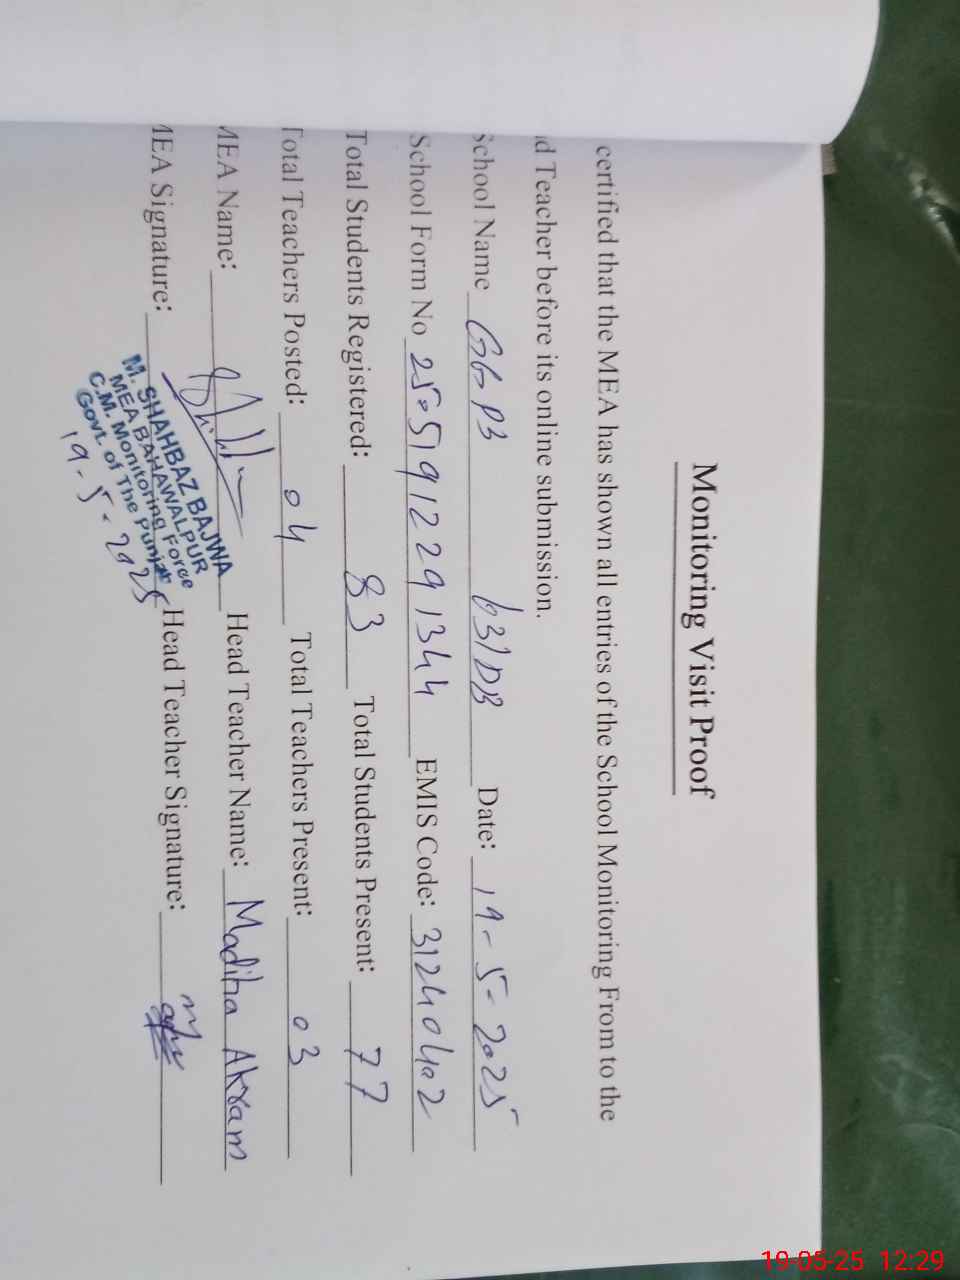 Monitoring Visit Proof
certified that the MEA has shown all entries of the School Monitoring From to the
d Teacher before its online submission.
School Name GGPS 63/DB Date: 19-5-2025
School Form No 25051912291344 EMIS Code: 31240402
Total Students Registered: 83 Total Students Present: 77
Total Teachers Posted: 04 Total Teachers Present: 03
MEA Name: Head Teacher Name: Madiha Akram
MEA Signature: Head Teacher Signature:
M. SHAHBAZ BAJWA
MEA BAHAWALPUR
C.M. Monitoring Force
Govt. of The Punjab
19-5-2025
19-05-25 12:29